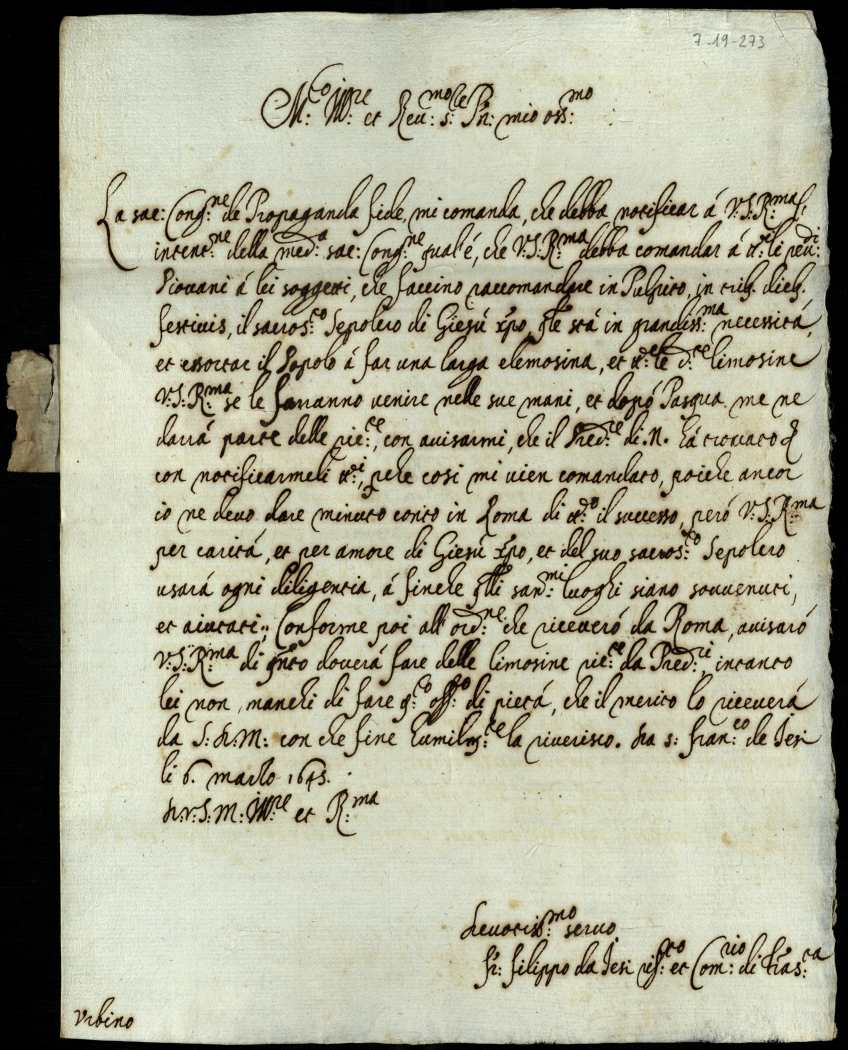 7-19-273
M:co Ill:re et Reu:mo s:le Pn: mio oss:mo
La sac: Cong:ne de Propaganda fide, mi comanda, che debba notificar á V.S.R:ma l'
intent:ne della med:a sac: Cong:ne qual'é, che V:S:R:ma debba comandar á t:ti li reu:di
Piovani á lei soggetti, che faccino raccomandare in Pulpito, in trib. dieb.
festiuis, il sacros:to Sepolcro di Giesú Xpo, qle stá in grandiss:ma necessitá,
et essortar il Popolo á far una larga elemosina, et t:te le d:te limosine
V:S:R:ma se le farranno venire nelle sue mani, et dopó Pasqua me ne
darrá parte delle ric:te, con auisarmi, che il Pred:re di N. há trouato
con notificarmeli t:ti, pche cosi mi vien comandato, poiche ancor
io ne deuo dare minuto conto in Roma di t:to il successo, peró V:S:R:ma
per caritá, et per amore di Giesú Xpo, et del suo sacros:to Sepolcro
usará ogni diligentia, á finche qlli san:mi luoghi siano souuenuti,
et aiutati: Conforme poi all'ord:ne che riceueró da Roma, auisaró
V:S:R:ma di qnto douerá fare delle limosine ric:te da Pred:ri, intanto
lei non manchi di fare q:to off:o di pietá, che il merito lo riceuerá
da S: D: M: con che fine humilm:te la riuerisco. Da S: Fran:co de Jesi
li 6. marzo 1643.
D: V: S: M: Ill:re et R:ma
Deuotiss:mo seruo
fr: Filippo da Jesi et Com:rio di Terra s:ta
Vrbino